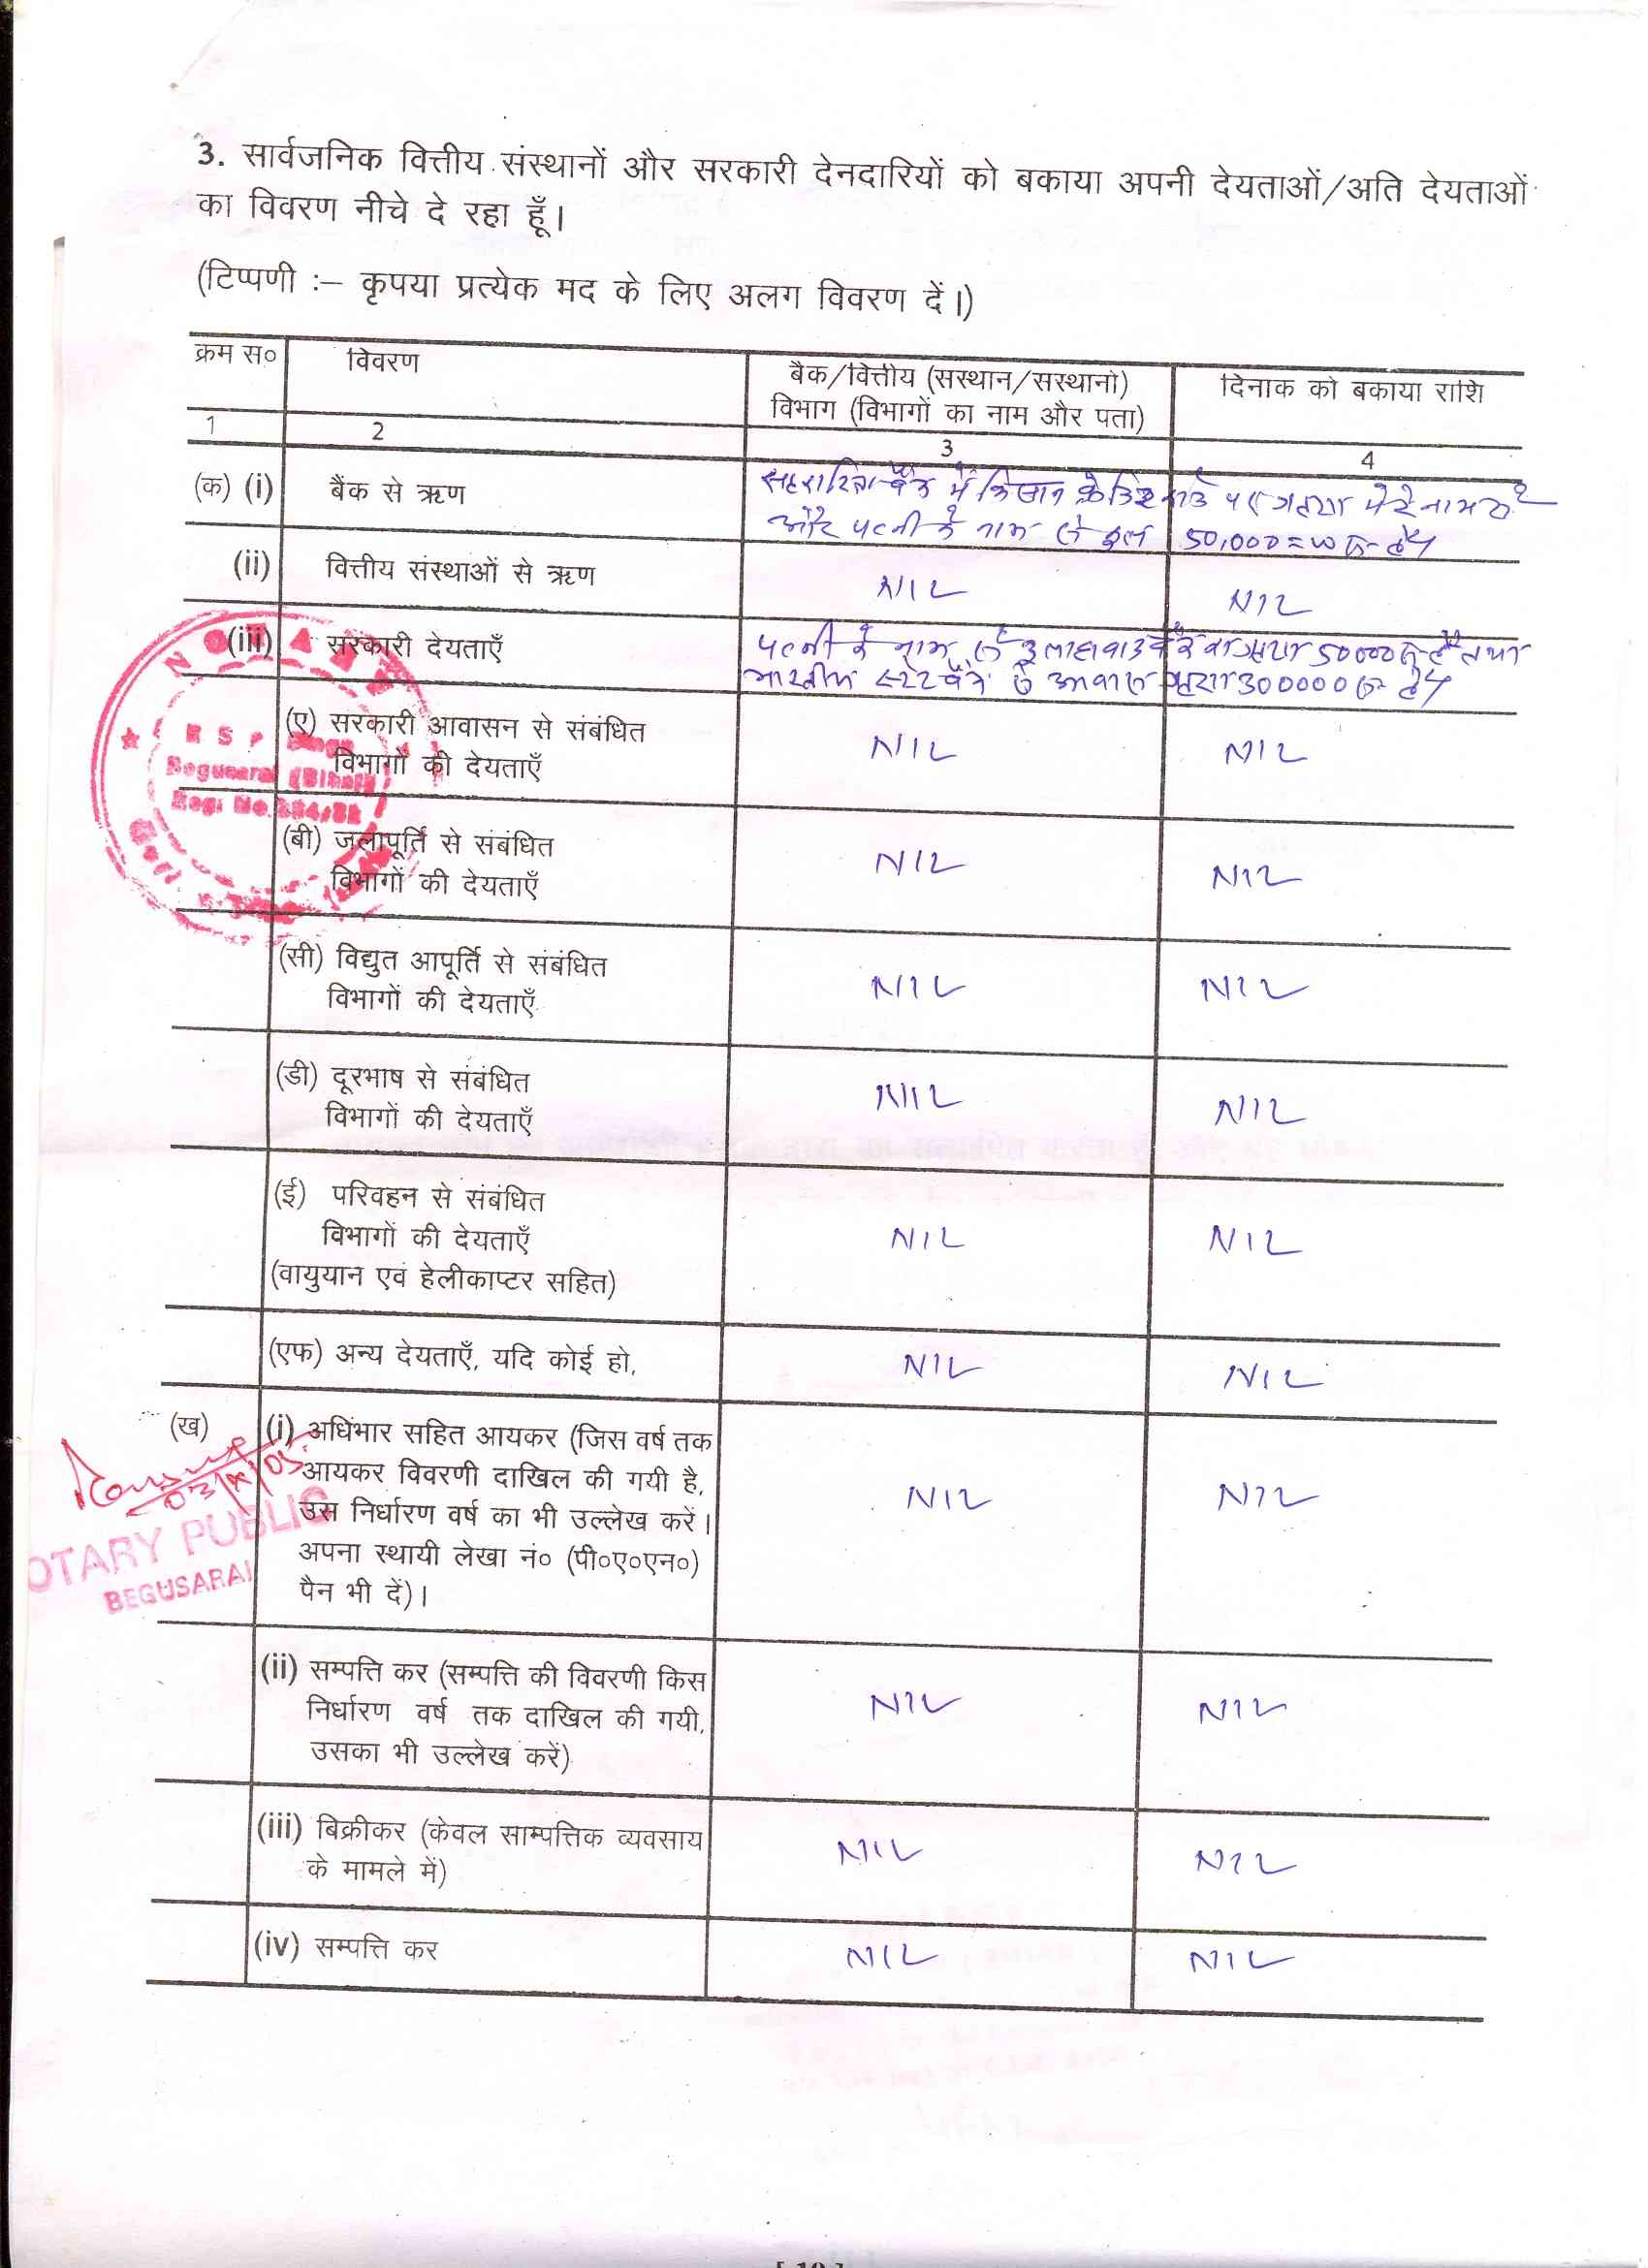 3. सार्वजनिक वित्तीय संस्थानों और सरकारी देनदारियों को बकाया अपनी देयताओं/अति देयताओं
का विवरण नीचे दे रहा हूँ।
(टिप्पणी :– कृपया प्रत्येक मद के लिए अलग विवरण दें।)
क्रम स० विवरण बैक/वित्तीय (सस्थान/सस्थानो) दिनाक को बकाया राशि
विभाग (विभागों का नाम और पता)
1 2 3 4
(क) (i) बैंक से ऋण में किसान पर मेरे नाम
और पत्नी के नाम से कुल 50,000=00 रू है
(ii) वित्तीय संस्थाओं से ऋण NIL NIL
(iii) सरकारी देयताएँ पत्नी के नाम से इलाहावाद 50000 रू है तथा
स्टेट बैंक से आवास 300000 रू है
(ए) सरकारी आवासन से संबंधित NIL NIL
विभागों की देयताएँ
(बी) जलापूर्ति से संबंधित NIL NIL
विभागों की देयताएँ
(सी) विद्युत आपूर्ति से संबंधित NIL NIL
विभागों की देयताएँ
(डी) दूरभाष से संबंधित NIL NIL
विभागों की देयताएँ
(ई) परिवहन से संबंधित
विभागों की देयताएँ NIL NIL
(वायुयान एवं हेलीकाप्टर सहित)
(एफ) अन्य देयताएँ, यदि कोई हो, NIL NIL
(ख) (i) अधिभार सहित आयकर (जिस वर्ष तक
आयकर विवरणी दाखिल की गयी है, NIL NIL
उस निर्धारण वर्ष का भी उल्लेख करें।
अपना स्थायी लेखा नं० (पी०ए०एन०)
पैन भी दें)।
(ii) सम्पत्ति कर (सम्पत्ति की विवरणी किस
निर्धारण वर्ष तक दाखिल की गयी, NIL NIL
उसका भी उल्लेख करें)
(iii) बिक्रीकर (केवल साम्पत्तिक व्यवसाय NIL NIL
के मामले में)
(iv) सम्पत्ति कर NIL NIL
R S P
Begusarai (Bihar)
Regi No.
OTARY PUBLIC
BEGUSARAI